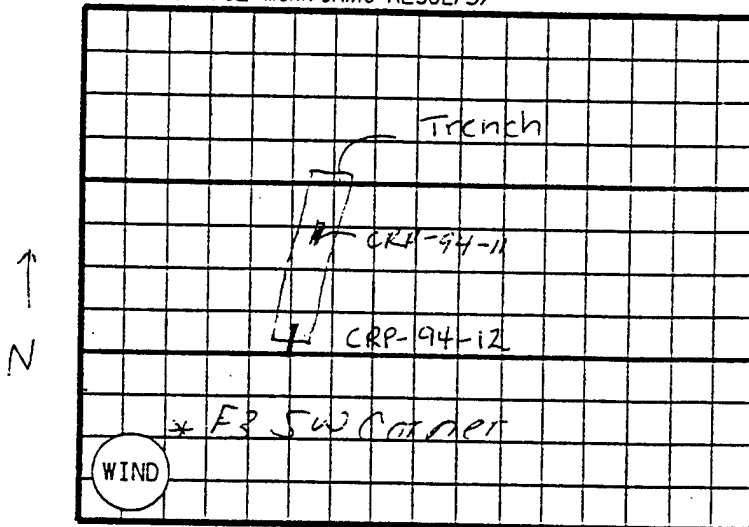 RESULTS)
Trench
CRP-94-11
CRP-94-12
N
* F3 SW Corner
WIND